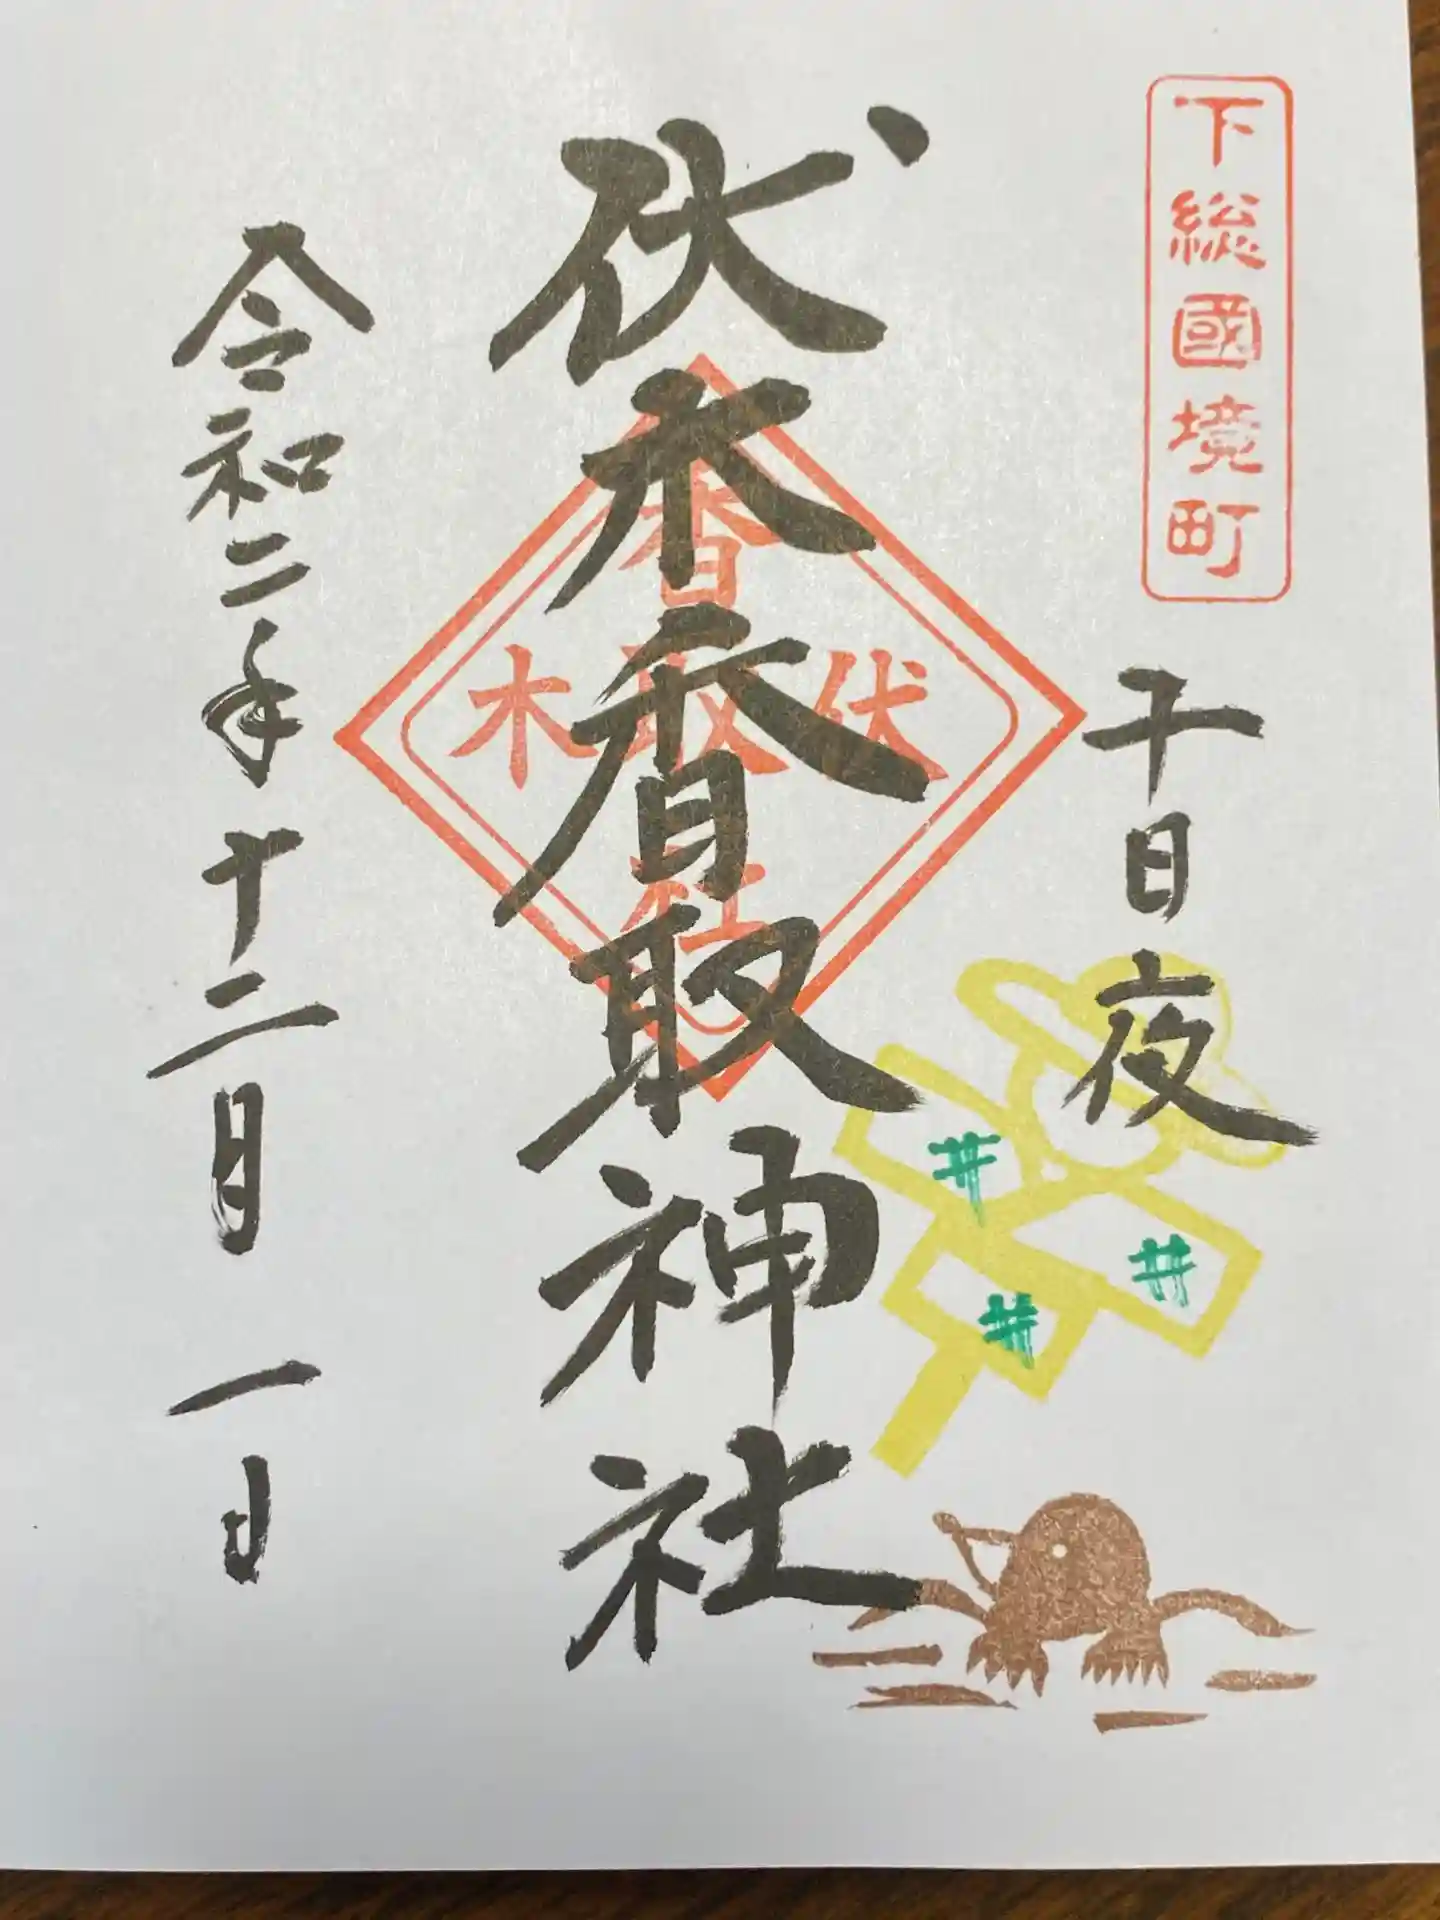 下総國境町
十日夜
伏木香取神社
伏木
香取
社
令和二年十二月一日